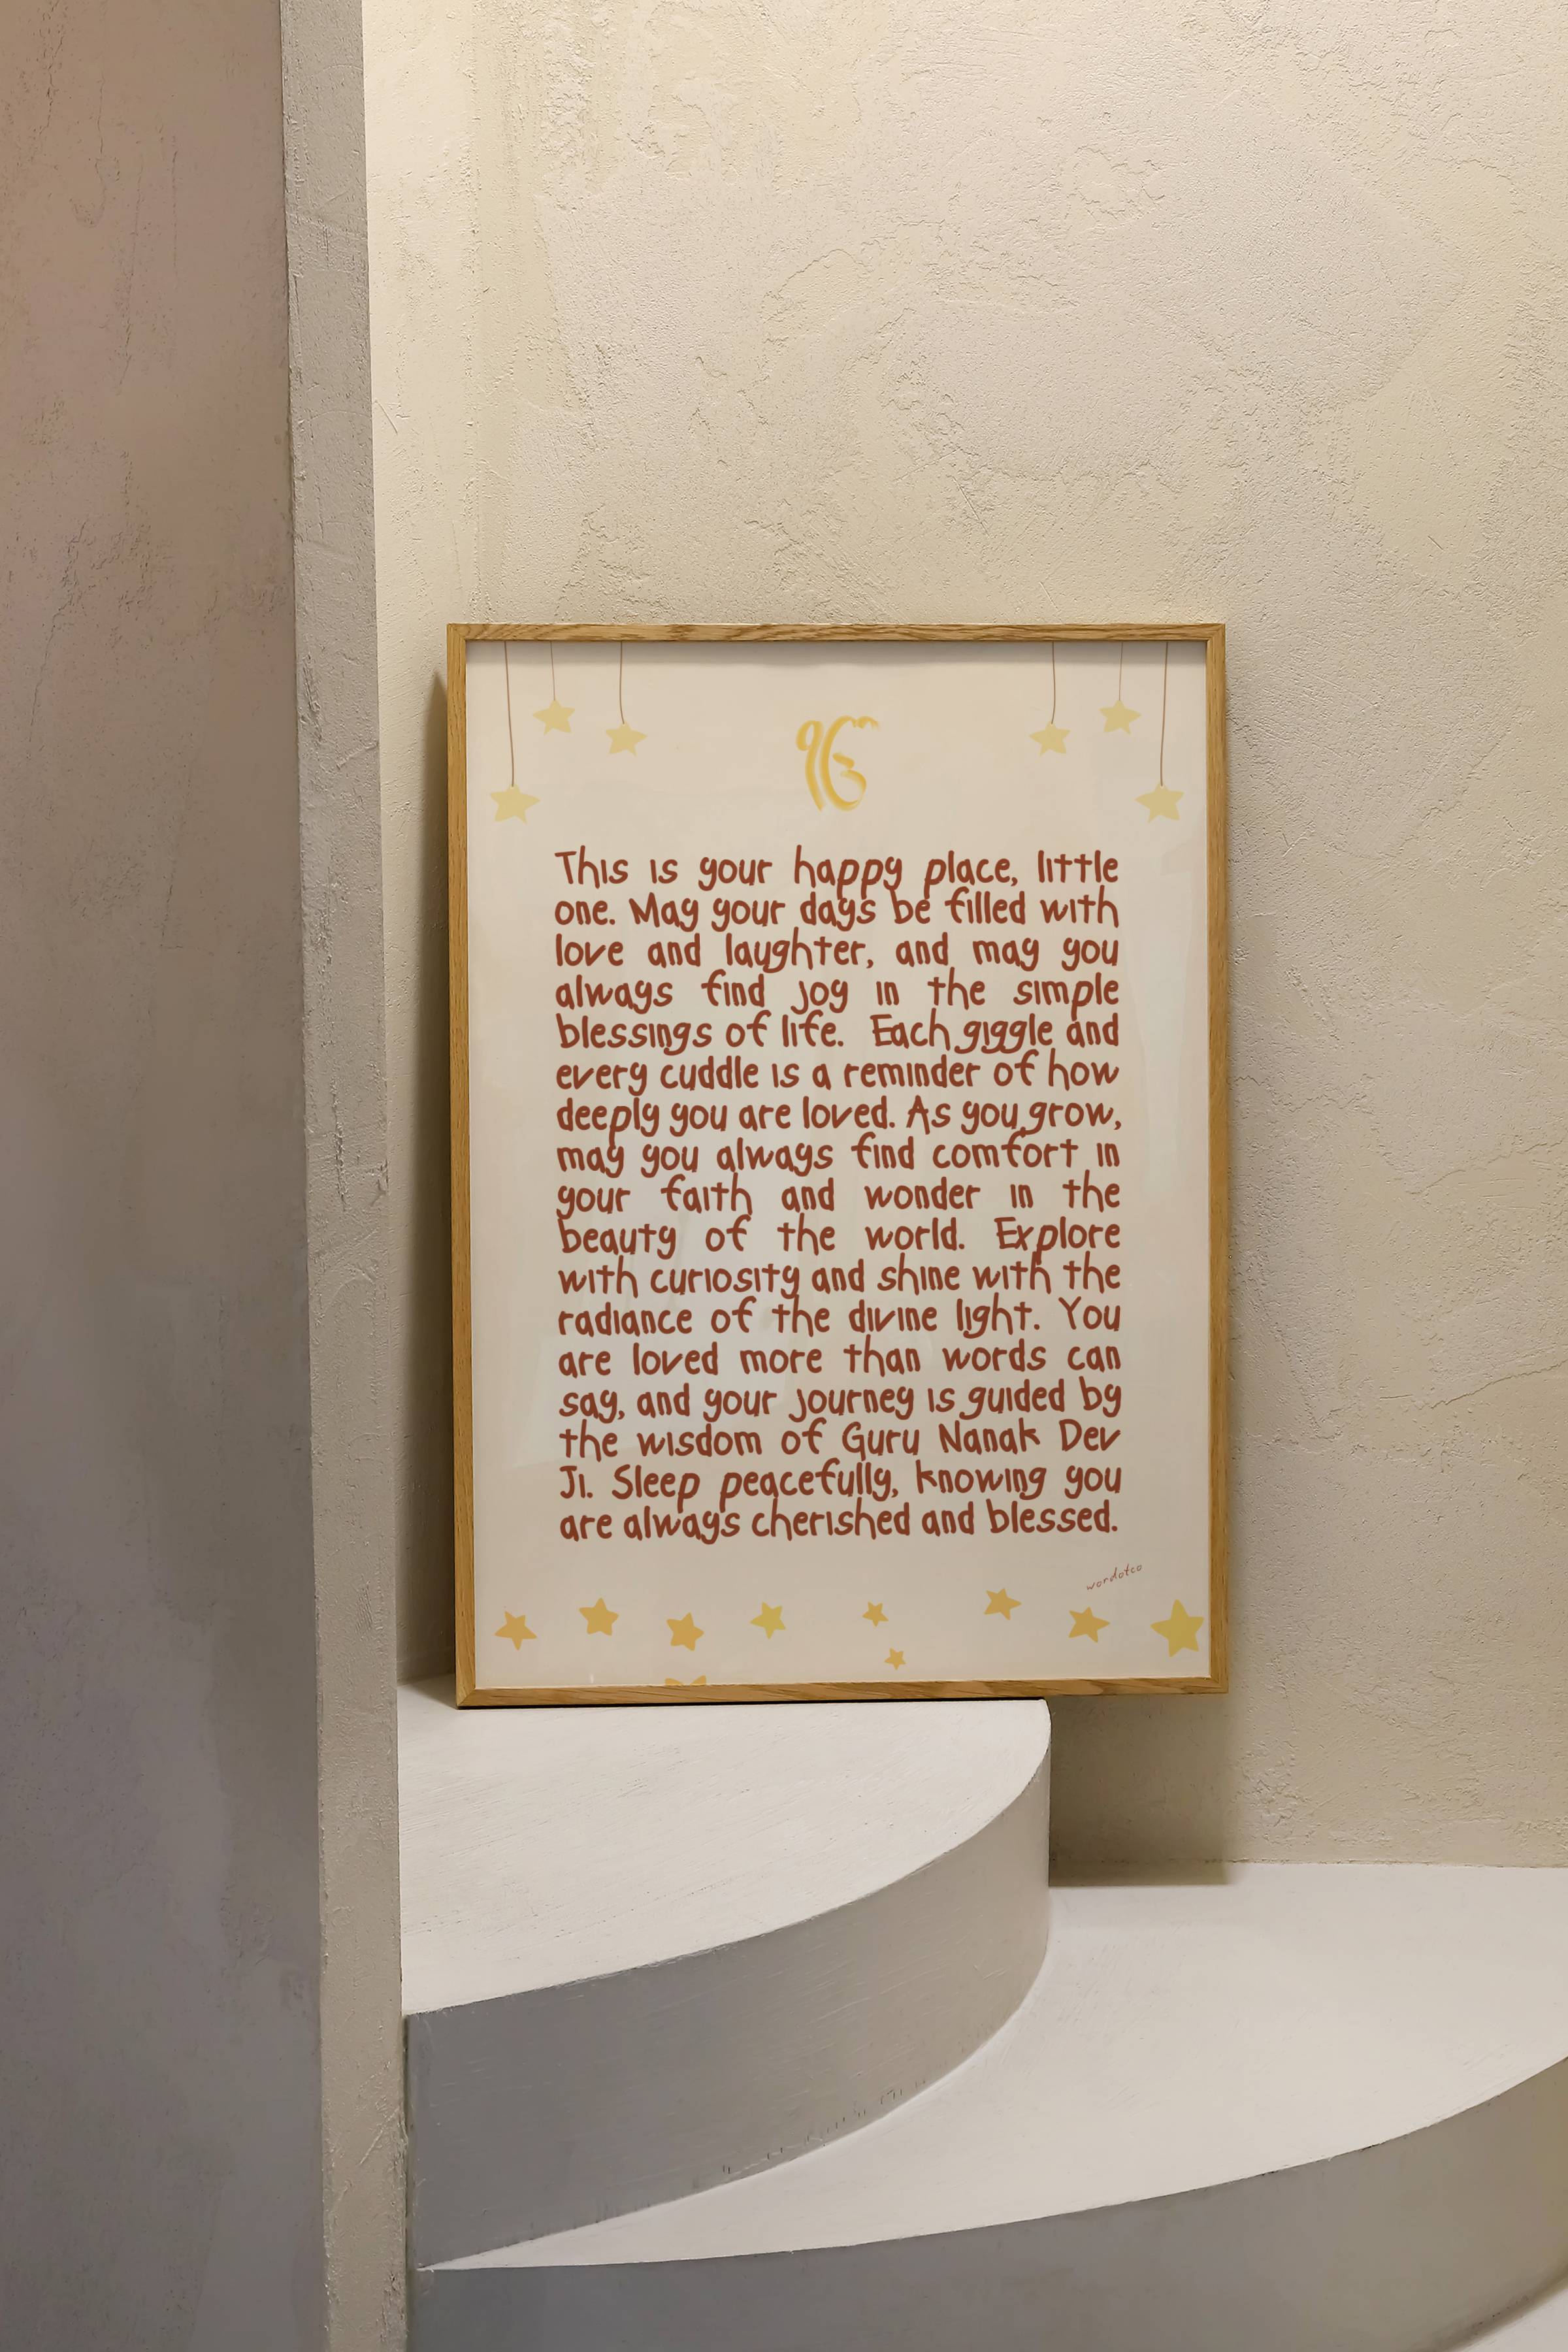 ੴ
This is your happy place, little
one. May your days be filled with
love and laughter, and may you
always find joy in the simple
blessings of life. Each giggle and
every cuddle is a reminder of how
deeply you are loved. As you grow,
may you always find comfort in
your faith and wonder in the
beauty of the world. Explore
with curiosity and shine with the
radiance of the divine light. You
are loved more than words can
say, and your journey is guided by
the wisdom of Guru Nanak Dev
Ji. Sleep peacefully, knowing you
are always cherished and blessed.
wordotco